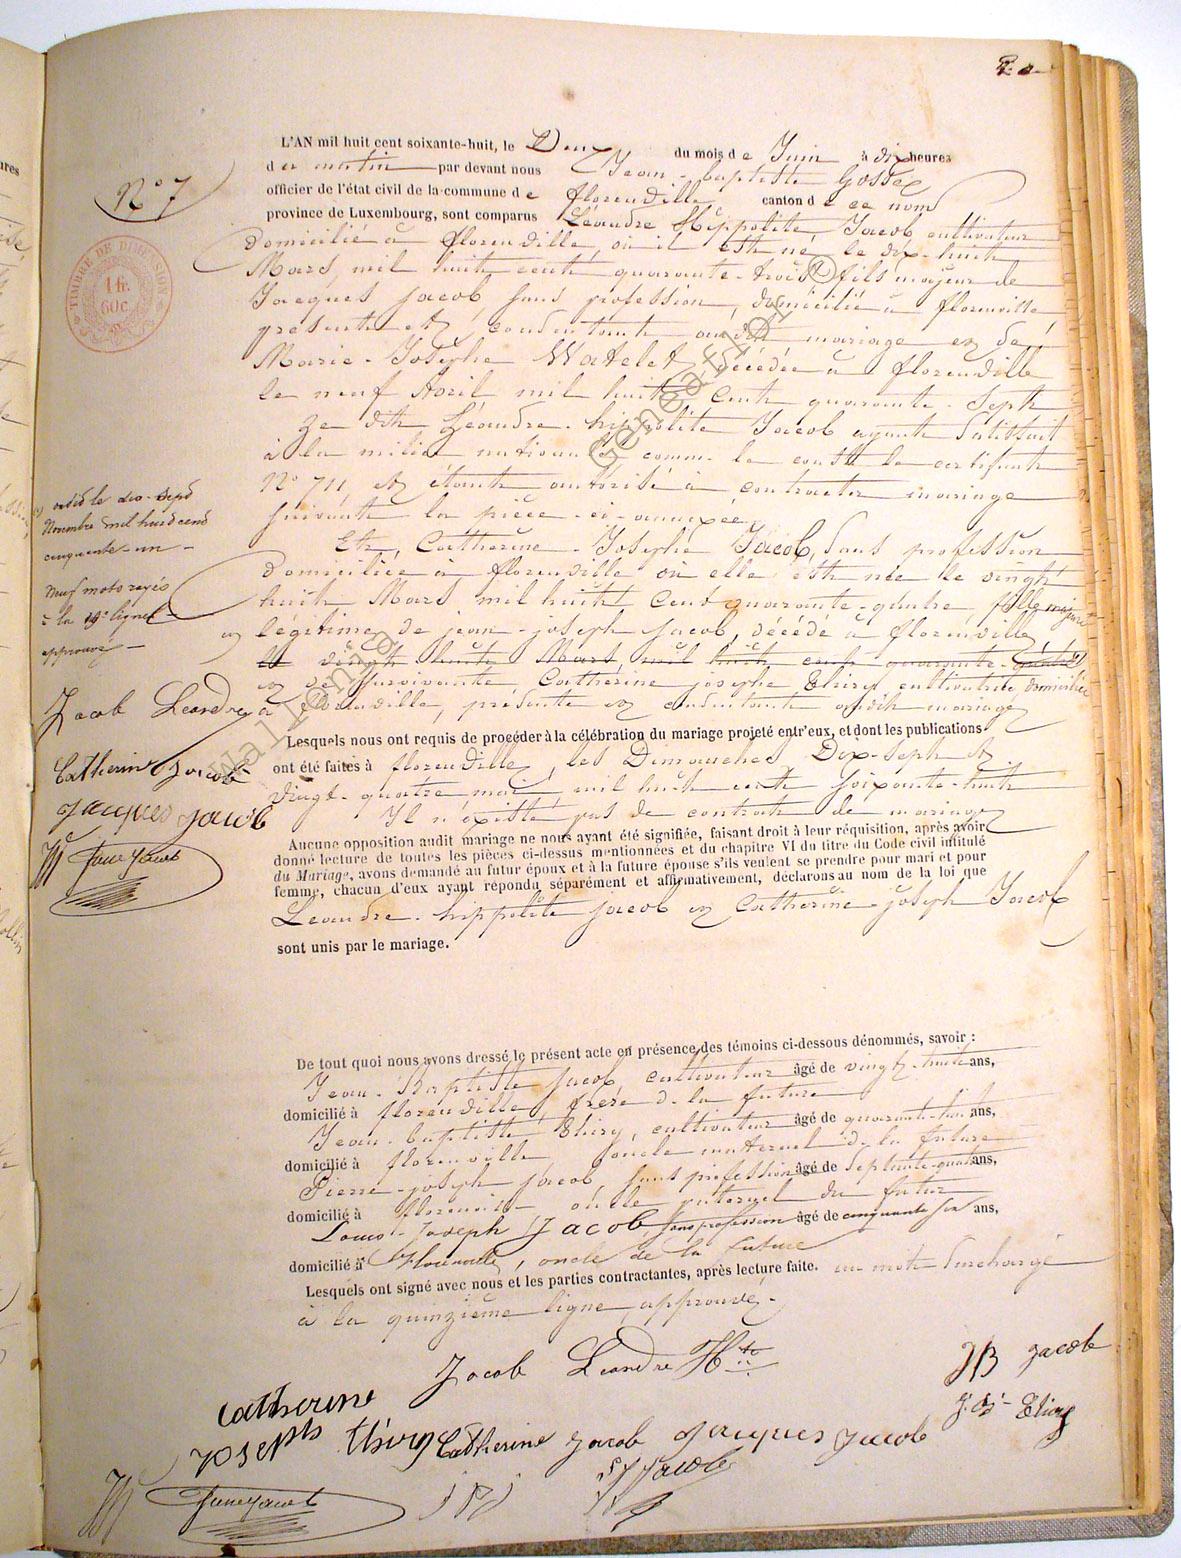 L'AN mil huit cent soixante-huit, le Deux du mois de Juin à dix heures
du matin par devant nous Jean-Baptiste Gosset
officier de l'état civil de la commune de florenville canton de ce nom
province de Luxembourg, sont comparus Léandre Hippolite Jacob cultivateur
domicilié à florenville, où il est né le dix-huit
Mars, mil huit cent quarante-trois fils majeur de
Jacques Jacob, sans profession, domicilié à florenville
présent et consentant audit mariage et de
Marie-Josèphe Watelet décédée à florenville
le neuf Avril mil huit cent quarante-sept
Le dit Léandre-hippolite Jacob ayant satisfait
à la milice nationale comme le constate le certificat
N° 711 et étant autorisé à contracter mariage
suivant la pièce ci-annexée
Et, Catherine-Josephe Jacob, sans profession
domiciliée à florenville où elle est née le vingt
huit Mars mil huit cent quarante-quatre fille majeure
légitime de jean-joseph Jacob, décédé à florenville,
le vingt-huit Mars, mil huit cent quarante
et de survivante Catherine josephe Thiry cultivatrice domiciliée
à florenville, présente et consentant audit mariage
Lesquels nous ont requis de procéder à la célébration du mariage projeté entr'eux, et dont les publications
ont été faites à florenville, les Dimanches Dix-sept et
vingt-quatre mai, mil huit cent soixante-huit
Il n'existe pas de contrat de mariage
Aucune opposition audit mariage ne nous ayant été signifiée, faisant droit à leur réquisition, après avoir
donné lecture de toutes les pièces ci-dessus mentionnées et du chapitre VI du titre du Code civil intitulé
du Mariage, avons demandé au futur époux et à la future épouse s'ils veulent se prendre pour mari et pour
femme, chacun d'eux ayant répondu séparément et affirmativement, déclarons au nom de la loi que
Léandre-hippolite jacob et Catherine-joseph Jacob
sont unis par le mariage.
De tout quoi nous avons dressé le présent acte en présence des témoins ci-dessous dénommés, savoir :
Jean-Baptiste Jacob, cultivateur âgé de vingt-huit ans,
domicilié à florenville, frère de la future
Jean-baptiste Thiry, cultivateur âgé de quarante-huit ans,
domicilié à florenville, oncle maternel de la future
Pierre-joseph jacob, sans profession âgé de septante-quatre ans,
domicilié à florenville, oncle paternel du futur
Louis-Joseph Jacob sans profession âgé de cinquante six ans,
domicilié à Florenville, oncle de la future
Lesquels ont signé avec nous et les parties contractantes, après lecture faite. un mot surchargé
à la quinzième ligne, approuvé.
Jacob Léandre Hte
JB Jacob
Catherine
Joseph Thiry Catherine Jacob Jacques Jacob
J. Bte Thiry
Jacob
N° 7
TIMBRE DE DIMENSION
1 fr.
60c.
le dix-sept
Novembre mil huit cent
cinquante-un
Neuf mots rayés
à la 19e ligne
approuvé
Jacob Léandre
Catherine Jacob
Jacques Jacob
Wallonia
Geneanet.org